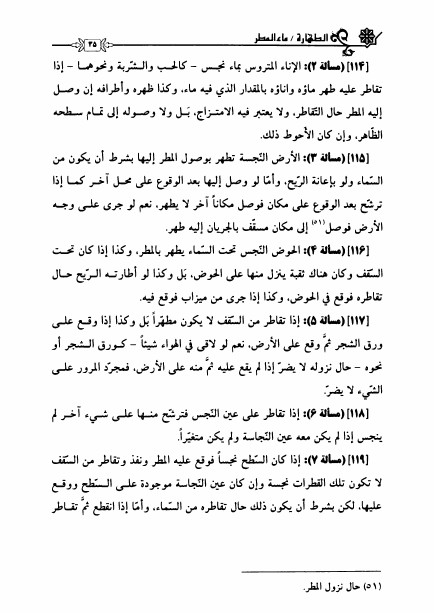 الطهارة / ماء المطر
٣٥
[١١٤] (مسألة ٢): الإناء المتروس بماء نجس – كالحب والشربة ونحوهما – إذا
تقاطر عليه طهر ماؤه واناؤه بالمقدار الذي فيه ماء، وكذا ظهره وأطرافه إن وصل
إليه المطر حال التّقاطر، ولا يعتبر فيه الامتزاج، بَل ولا وصوله إلى تمام سطحه
الظّاهر، وإن كان الأحوط ذلك.
[١١٥] (مسألة ٣): الأرض النّجسة تطهر بوصول المطر إليها بشرط أن يكون من
السّماء ولو بإعانة الرّيح، وأمّا لو وصل إليها بعد الوقوع على محل آخر كما إذا
ترشّح بعد الوقوع على مكان فوصل مكاناً آخر لا يطهر، نعم لو جرى على وجه
الأرض فوصل (٥١) إلى مكان مسقّف بالجريان إليه طهر.
[١١٦] (مسألة ٤): الحوض النّجس تحت السّماء يطهر بالمطر، وكذا إذا كان تحت
السّقف وكان هناك ثقبة ينزل منها على الحوض، بَل وكذا لو أطارته الرّيح حال
تقاطره فوقع في الحوض، وكذا إذا جرى من ميزاب فوقع فيه.
[١١٧] (مسألة ٥): إذا تقاطر من السّقف لا يكون مطهّراً بَل وكذا إذا وقع على
ورق الشجر ثمَّ وقع على الأرض، نعم لو لاقى في الهواء شيئاً – كورق الشجر أو
نحوه – حال نزوله لا يضرّ إذا لم يقع عليه ثمَّ منه على الأرض، فمجرّد المرور على
الشّيء لا يضرّ.
[١١٨] (مسألة ٦): إذا تقاطر على عين النّجس فترشّح منها على شيء آخر لم
ينجس إذا لم يكن معه عين النّجاسة ولم يكن متغيّراً.
[١١٩] (مسألة ٧): إذا كان السّطح نجساً فوقع عليه المطر ونفذ وتقاطر من السّقف
لا تكون تلك القطرات نجسة وإن كان عين النّجاسة موجودة على السّطح ووقع
عليها، لكن بشرط أن يكون ذلك حال تقاطره من السّماء، وأمّا إذا انقطع ثمَّ تقاطر
(٥١) حال نزول المطر.